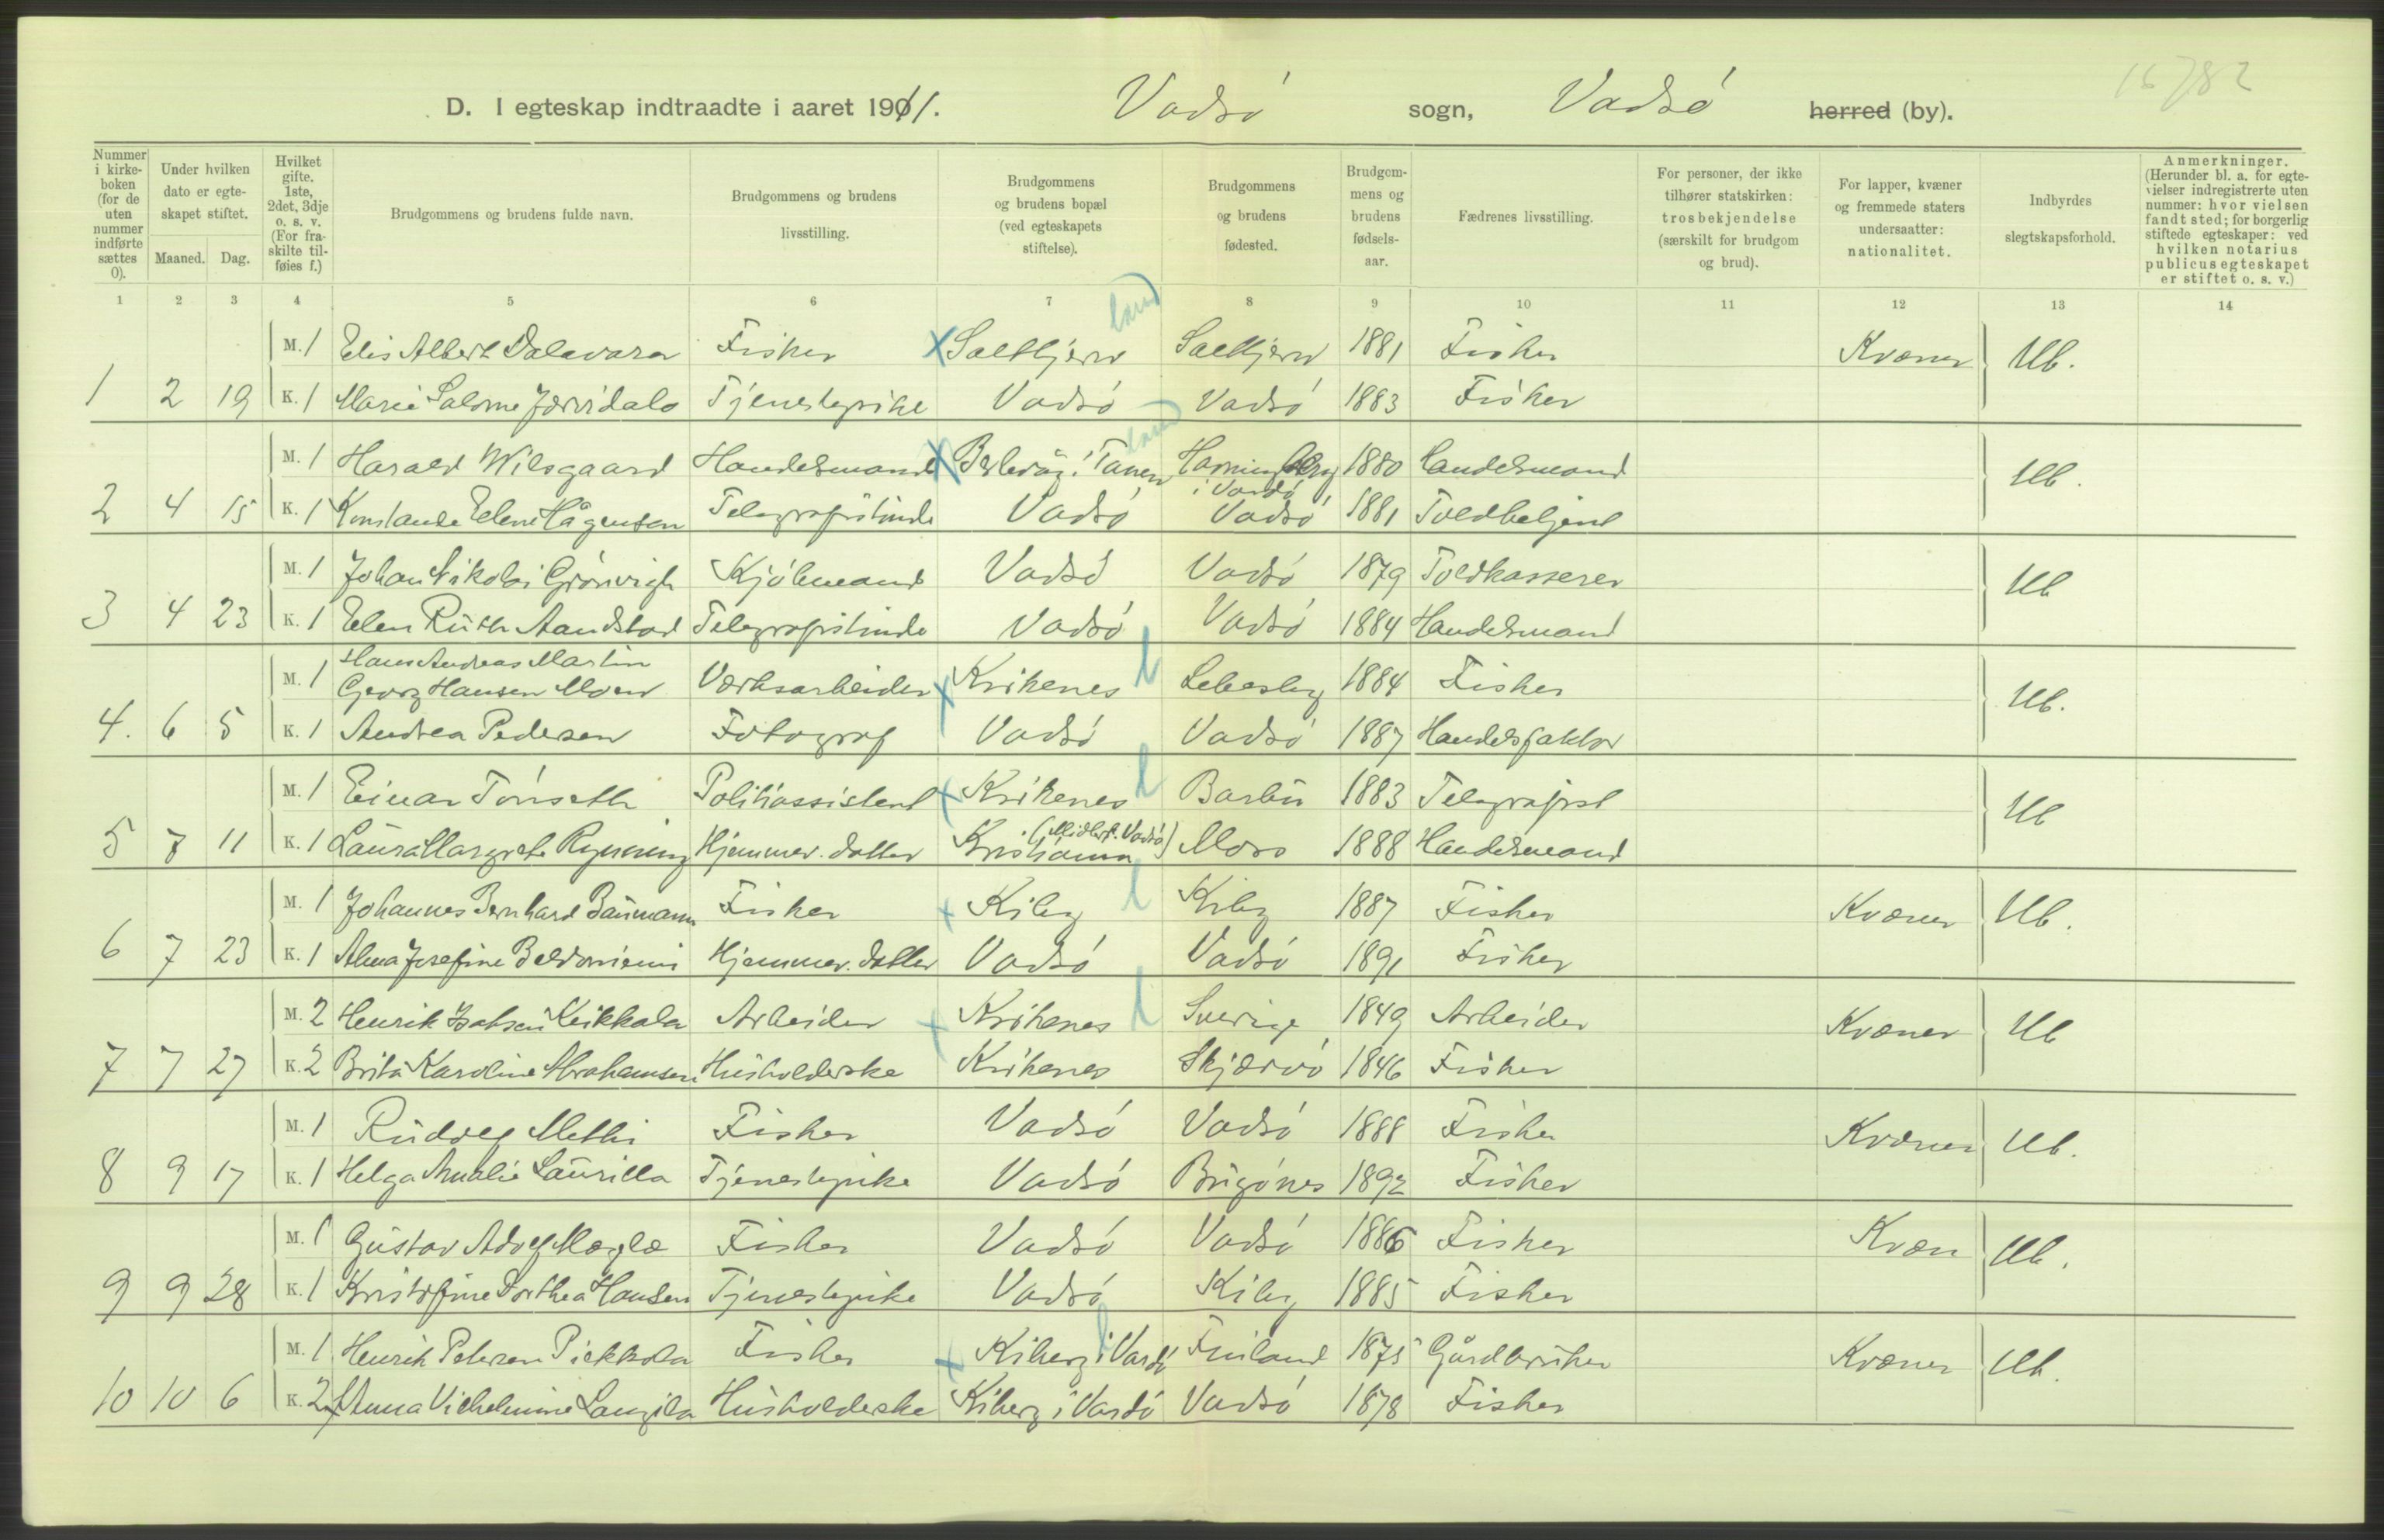 15782
D. I egteskap indtraadte i aaret 1911. Vadsö sogn, Vadsö herred (by).
Nummer i kirke-boken (for de uten nummer indførte sættes 0).
Under hvilken dato er egte-skapet stiftet.
Maaned. Dag.
Hvilket gifte. 1ste, 2det, 3dje o. s. v. (For fra-skilte til-føies f.)
Brudgommens og brudens fulde navn.
Brudgommens og brudens livsstilling.
Brudgommens og brudens bopæl (ved egteskapets stiftelse).
Brudgommens og brudens fødested.
Brudgom-mens og brudens fødsels-aar.
Fædrenes livsstilling.
For personer, der ikke tilhører statskirken: trosbekjendelse (særskilt for brudgom og brud).
For lapper, kvæner og fremmede staters undersaatter: nationalitet.
Indbyrdes slegtskapsforhold.
Anmerkninger. (Herunder bl. a. for egte-vielser indregistrerte uten nummer: hvor vielsen fandt sted; for borgerlig stiftede egteskaper: ved hvilken notarius publicus egteskapet er stiftet o. s. v.)
1 2 3 4 5 6 7 8 9 10 11 12 13 14
land
M. 1 Elis Albert Dalavara Fisker x Saltkjern Saltkjern 1881 Fisker Kvæner Ub.
1 2 19 K. 1 Marie Salome Jærvidalo Tjenestepike Vadsö Vadsö 1883 Fisker
land
M. 1 Harald Wilsgaard Handelsmand x Berlevåg i Tanen Havningberg i Vardö 1880 Handelsmand Ub.
2 4 15 K. 1 Konstanse Elene Hågensen Telegrafistinde Vadsö Vadsö 1881 Toldbetjent
M. 1 Johan Nikolai Grönvigh Kjöbmand Vadsö Vadsö 1879 Toldkasserer Ub
3 4 23 K. 1 Elen Ruth Aandstad Telegrafistinde Vadsö Vadsö 1884 Handelsmand
M. 1 Hans Andreas Martin Georg Hansen Moen Verksarbeider x Kirkenes l Lebesby 1884 Fisker Ub.
4. 6 5 K. 1 Andrea Pedersen Fotograf Vadsö Vadsö 1887 Handelsfaktor
M. 1 Einar Tönseth Politiassistent x Kirkenes l Barbu 1883 Telegrafist Ub
5 7 11 K. 1 Laura Margrete Rynning Hjemmev. datter Kristiania (Midlert. Vadsö) Moss 1888 Handelsmand
M. 1 Johannes Bernhard Baumann Fisker x Kiby l Kiby 1887 Fisker Kvæner Ub.
6 7 23 K. 1 Alma Josefine Beldoniemi Hjemmev. datter Vadsö Vadsö 1891 Fisker
M. 2 Henrik Isaksen Keikkala Arbeider x Kirkenes l Sverige 1849 Arbeider Kvæner Ub
7 7 27 K. 2 Brita Karoline Abrahamsen Husholderske Kirkenes Skjærvö 1846 Fisker
M. 1 Rudolf Methi Fisker Vadsö Vadsö 1888 Fisker Kvæner Ub.
8 9 17 K. 1 Helga Amalie Laurilla Tjenestepike Vadsö Bugönes 1892 Fisker
M. 1 Gustav Adolf Mæglæ Fisker Vadsö Vadsö 1886 Fisker Kvæn Ub.
9 9 28 K. 1 Kristofine Dorthea Hansen Tjenestepike Vadsö Kiby 1885 Fisker
M. 1 Henrik Petersen Piekkola Fisker x Kiberg i Vardö l Finland 1875 Gårdbruker Kvæner Ub.
10 10 6 K. 2 Anna Vilhelmine Langila Husholderske Kiberg i Vardö Vadsö 1878 Fisker